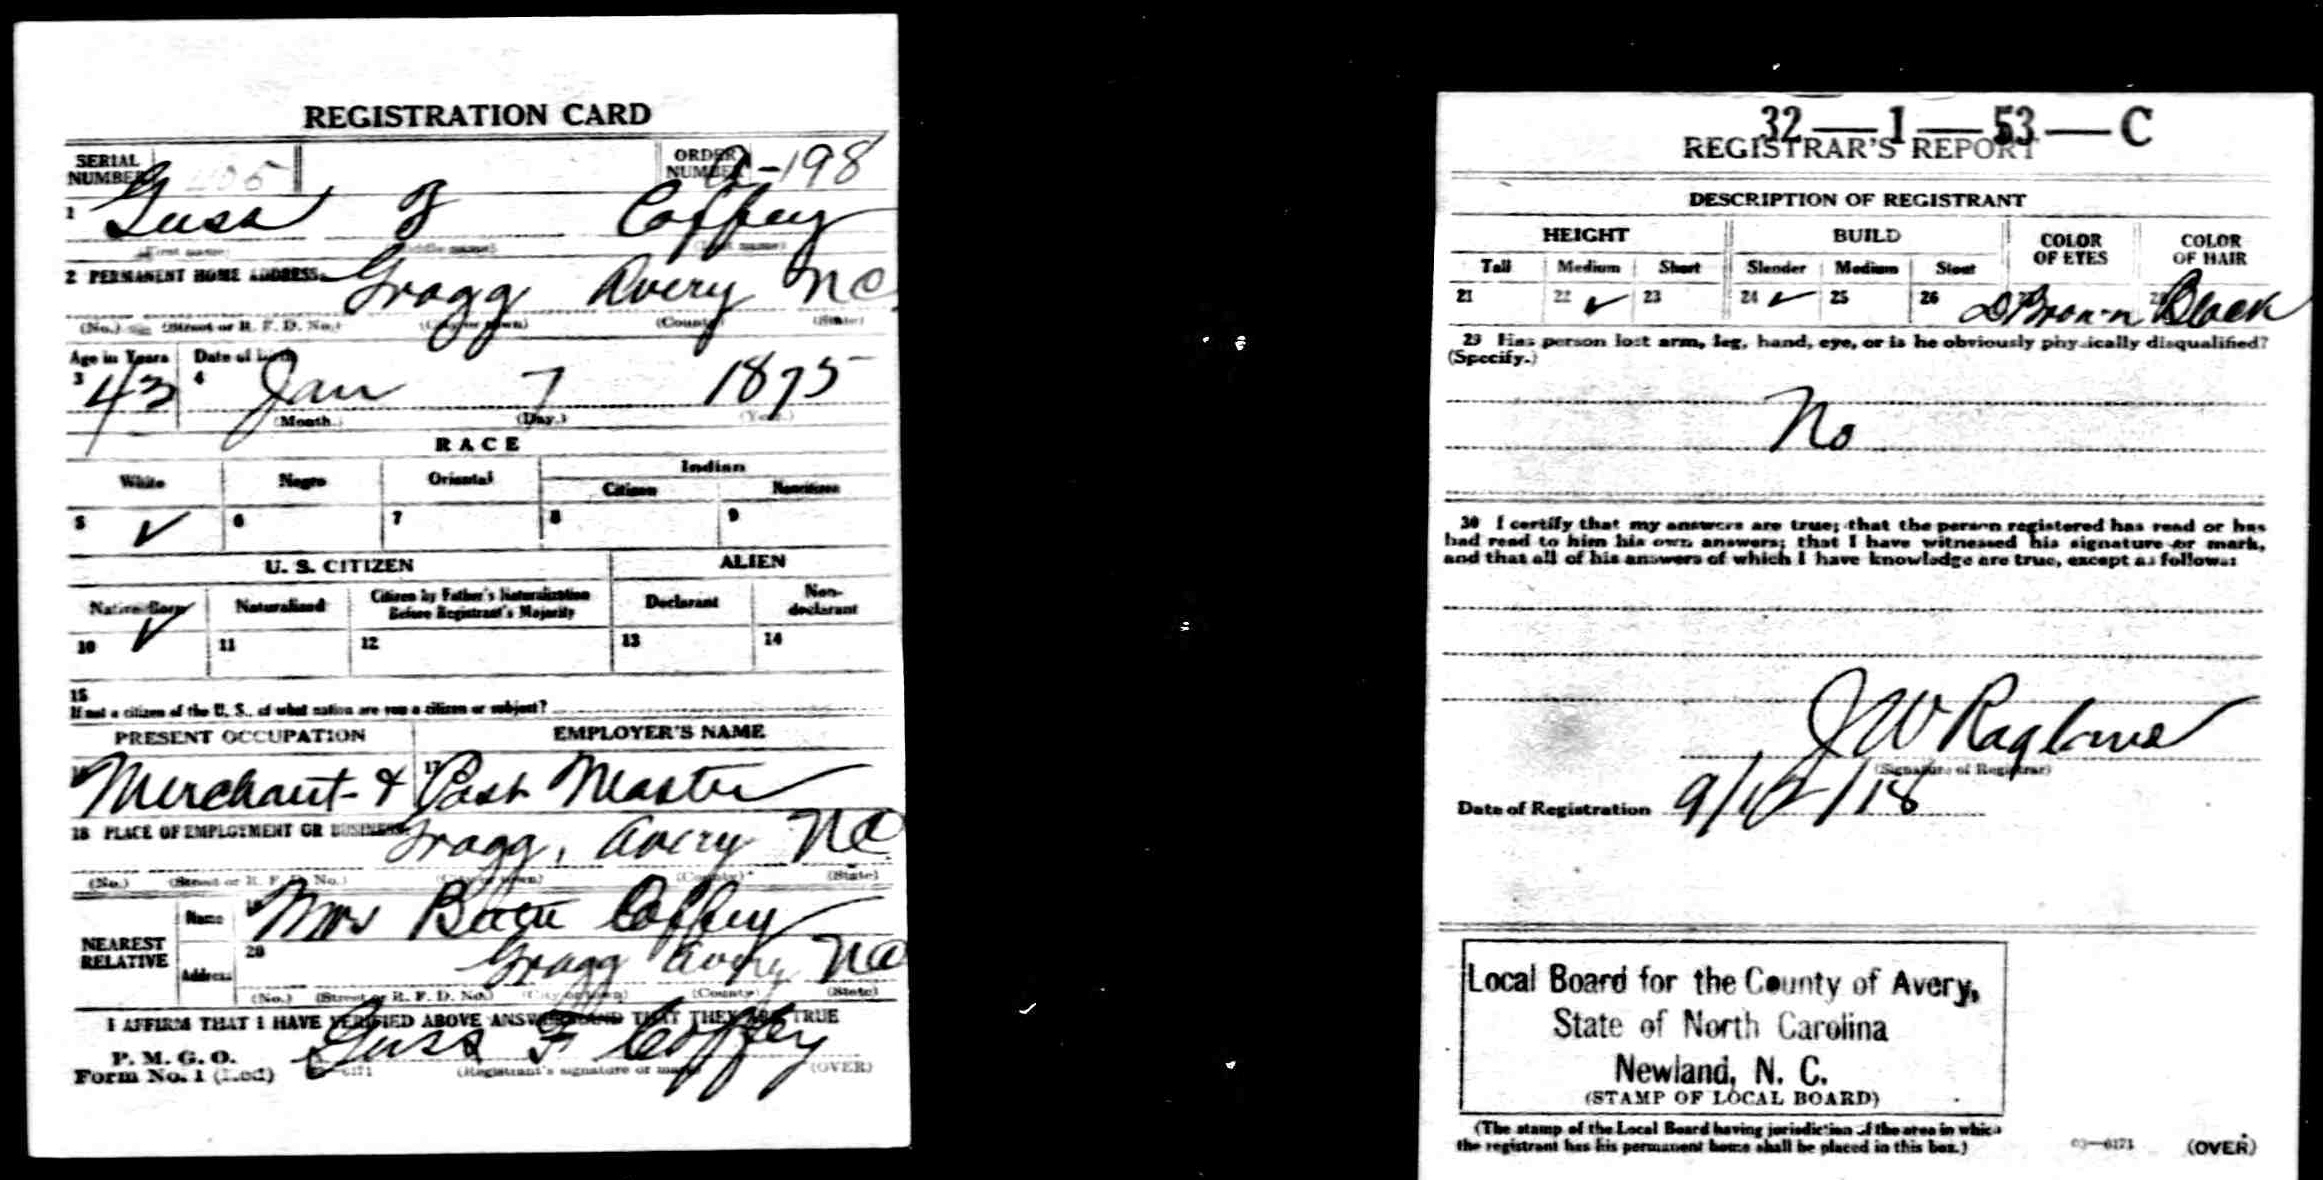 REGISTRATION CARD
SERIAL NUMBER
ORDER NUMBER A-198
1 Guss F Coffey
(First name) (Middle name) (Last name)
2 PERMANENT HOME ADDRESS Gragg Avery NC
(No.) (Street or R. F. D. No.) (City or town) (County) (State)
Age in Years Date of birth
3 43 4 Jan 7 1875
(Month.) (Day.) (Year.)
RACE
White Negro Oriental Indian
Citizen Noncitizen
5 ✓ 6 7 8 9
U. S. CITIZEN ALIEN
Native Born Naturalized Citizen by Father's Naturalization Before Registrant's Majority Declarant Non-declarant
10 ✓ 11 12 13 14
15
If not a citizen of the U. S., of what nation are you a citizen or subject?
PRESENT OCCUPATION EMPLOYER'S NAME
16 Merchant & 17 Post Master
18 PLACE OF EMPLOYMENT OR BUSINESS Gragg, Avery NC
(No.) (Street or R. F. D. No.) (City or town) (County) (State)
NEAREST RELATIVE
Name 19 Mrs Coffey
Address 20 Gragg Avery NC
(No.) (Street or R. F. D. No.) (City or town) (County) (State)
I AFFIRM THAT I HAVE VERIFIED ABOVE ANSWERS AND THAT THEY ARE TRUE
P. M. G. O.
Form No. 1 (Red) Guss F Coffey
(Registrant's signature or mark) (OVER)
32—1—53—C
REGISTRAR'S REPORT
DESCRIPTION OF REGISTRANT
HEIGHT BUILD COLOR OF EYES COLOR OF HAIR
Tall Medium Short Slender Medium Stout
21 22 ✓ 23 24 ✓ 25 26 D Brown Black
29 Has person lost arm, leg, hand, eye, or is he obviously physically disqualified?
(Specify.)
No
30 I certify that my answers are true; that the person registered has read or has
had read to him his own answers; that I have witnessed his signature or mark,
and that all of his answers of which I have knowledge are true, except as follows:
J W
(Signature of Registrar)
Date of Registration 9/12/18
Local Board for the County of Avery,
State of North Carolina
Newland, N. C.
(STAMP OF LOCAL BOARD)
(The stamp of the Local Board having jurisdiction of the area in which
the registrant has his permanent home shall be placed in this box.)
03—6171 (OVER)